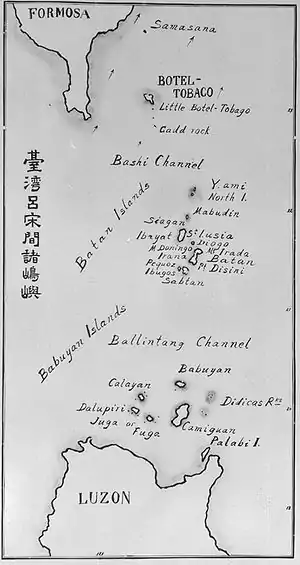 FORMOSA
Samasana
BOTEL-
TOBAGO
Little Botel-Tobago
Gadd rock
Bashi Channel
臺灣呂宋間諸嶋嶼
Batan Islands
Y. ami
North I.
Mabudin
Siagan
Ibayat
St Lusia
Diogo
M. Doningo
Mt Irada
Irana
Batan
Pequoz
Pt Disini
Ibugos
Sabtan
Babuyan Islands
Ballintang Channel
Babuyan
Calayan
Didicas Rks
Dalupiri
Juga or
Fuga
Camiguan
Palabi I.
LUZON